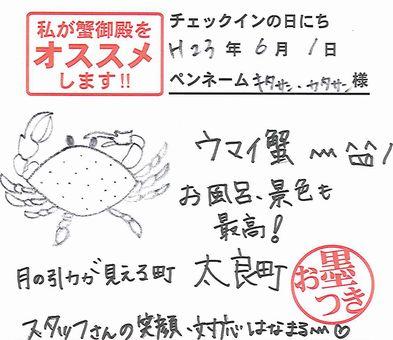 私が蟹御殿を
オススメ
します!!
チェックインの日にち
H23年6月1日
ペンネーム キタサン・カタサン様
ウマイ蟹
お風呂、景色も
最高!
月の引力が見える町 太良町
お墨つき
スタッフさんの笑顔、対応はなまる